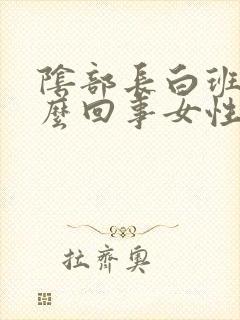 陰部長白班
麼回事女性
拉齊奧